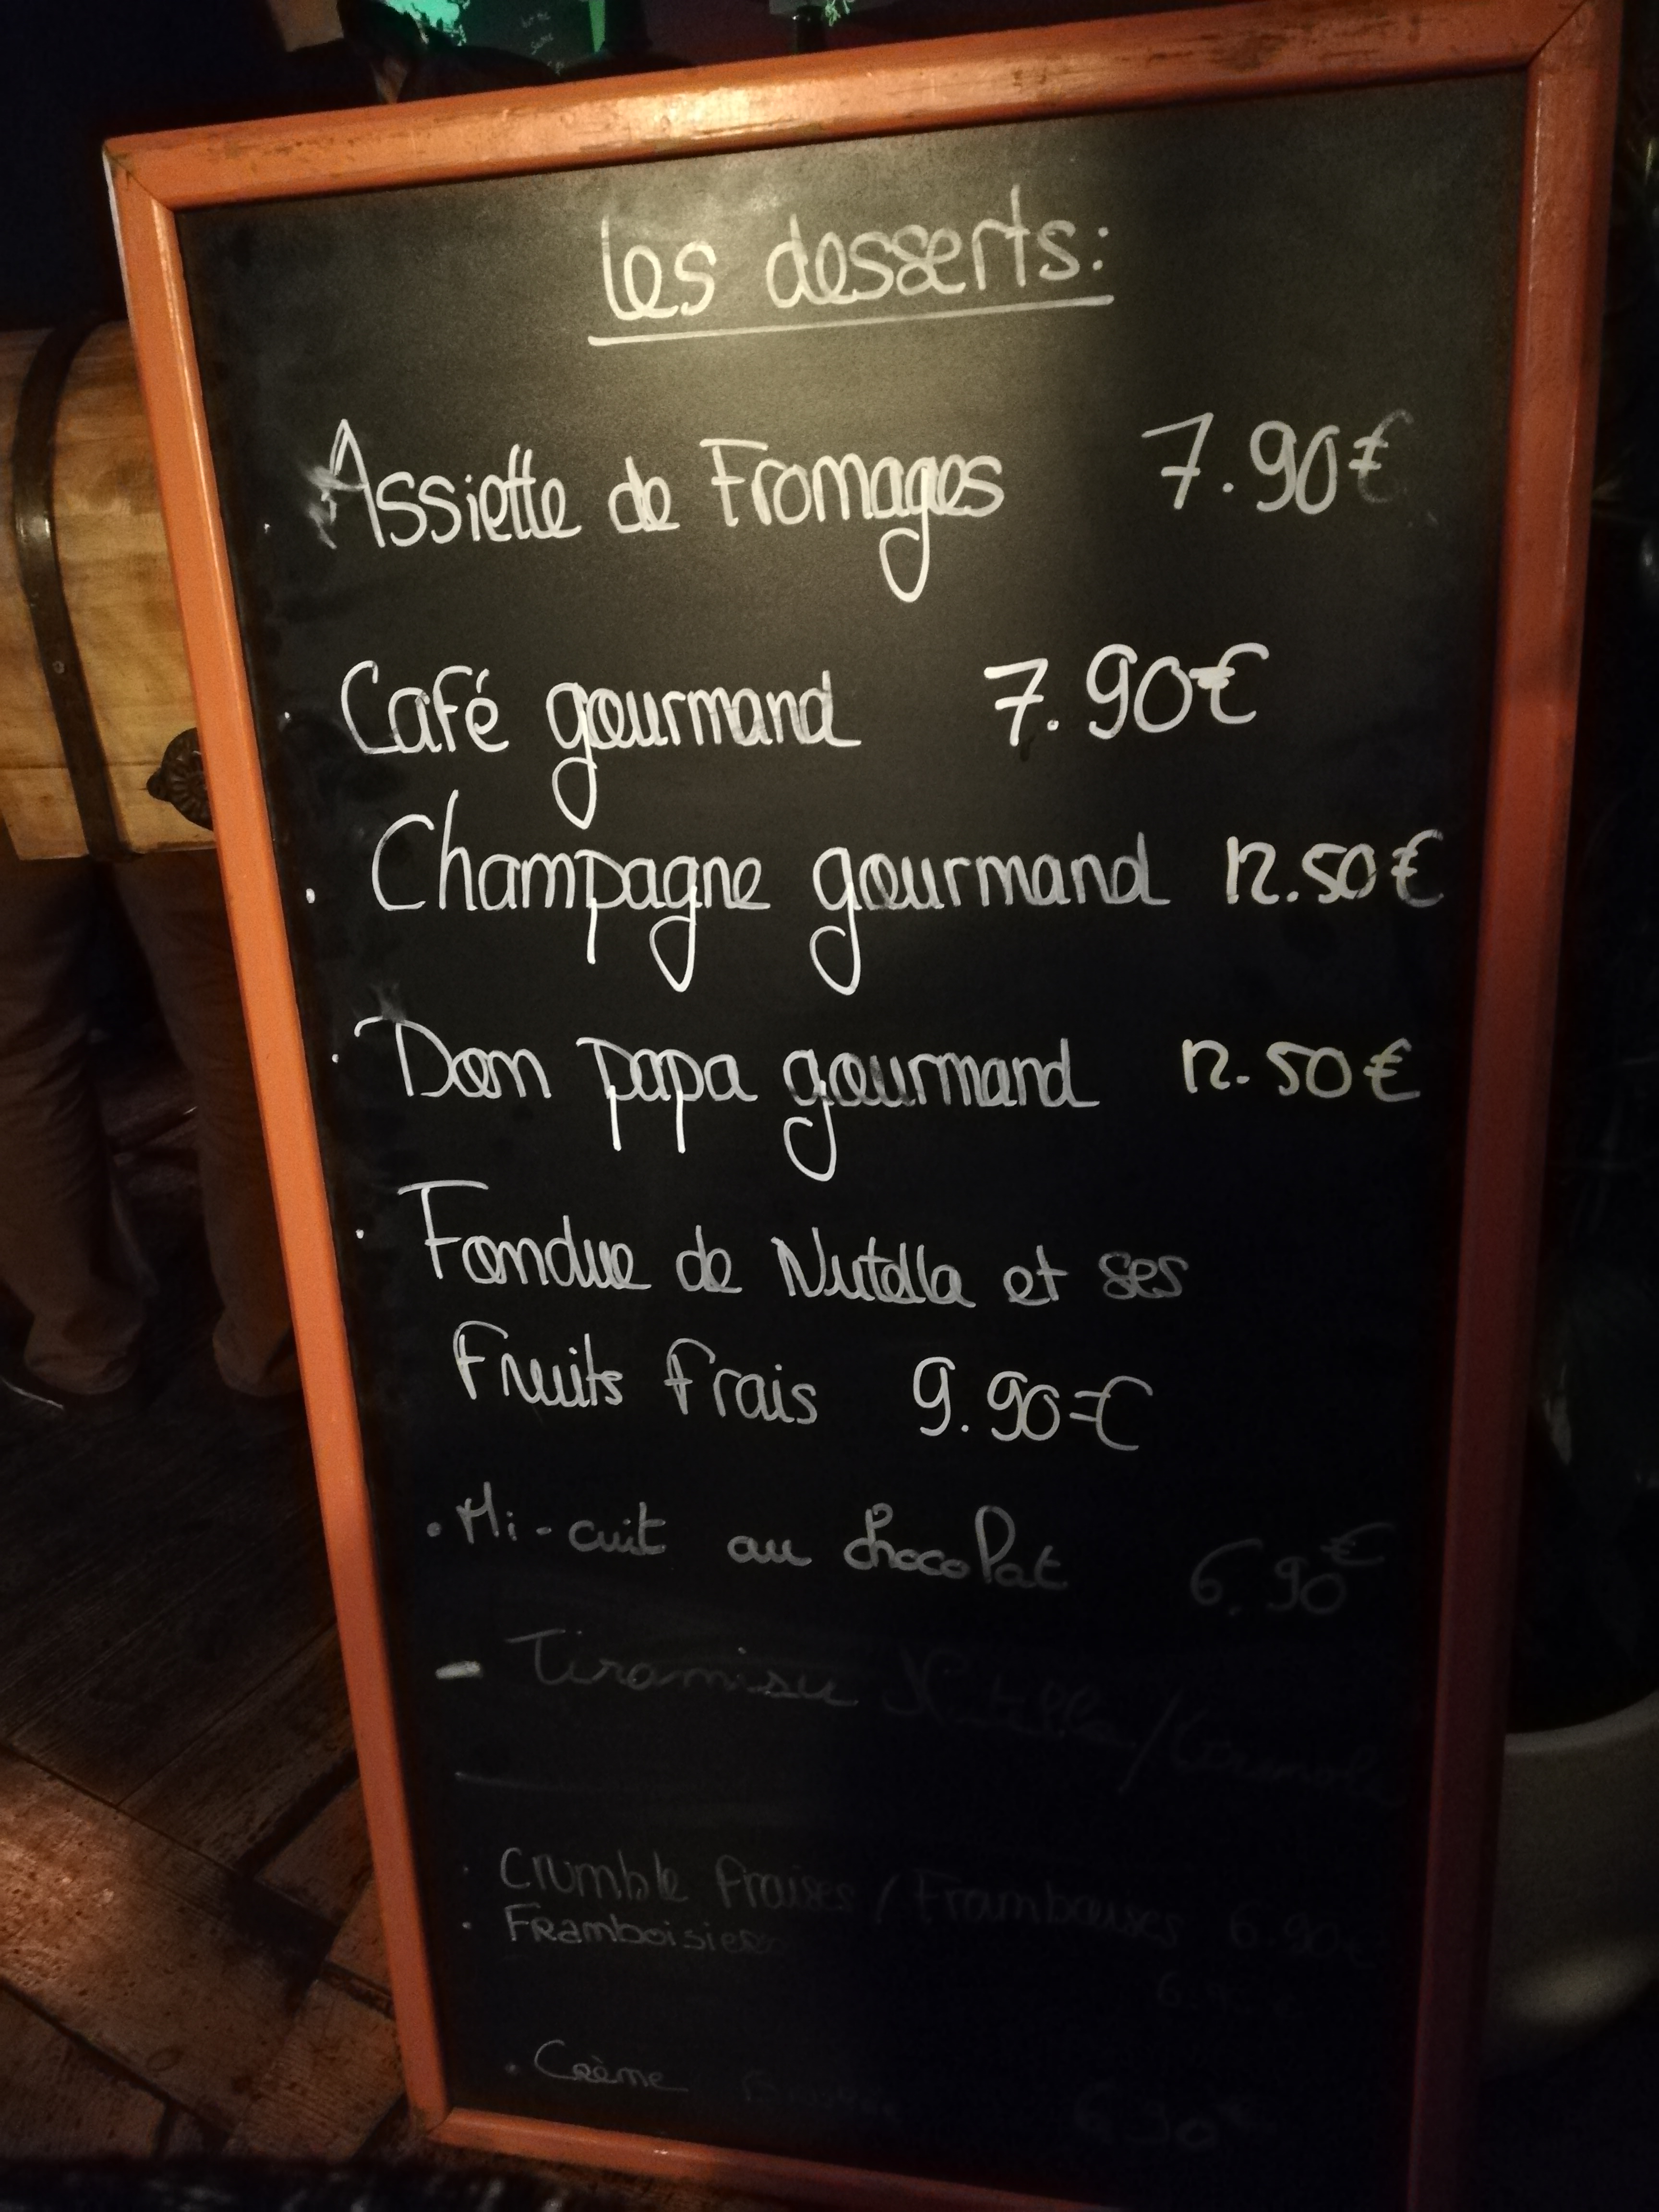 les desserts:
Assiette de Fromages 7.90€
Café gourmand 7.90€
. Champagne gourmand 12.50€
. Dom papa gourmand 12.50€
. Fondue de Nutella et ses
Fruits frais 9.90€
. Mi-cuit au chocolat 6.90€
- Tiramisu Nutella /
. Crumble fraises / Framboises 6.90€
. Framboisier
. Crème 6.90€